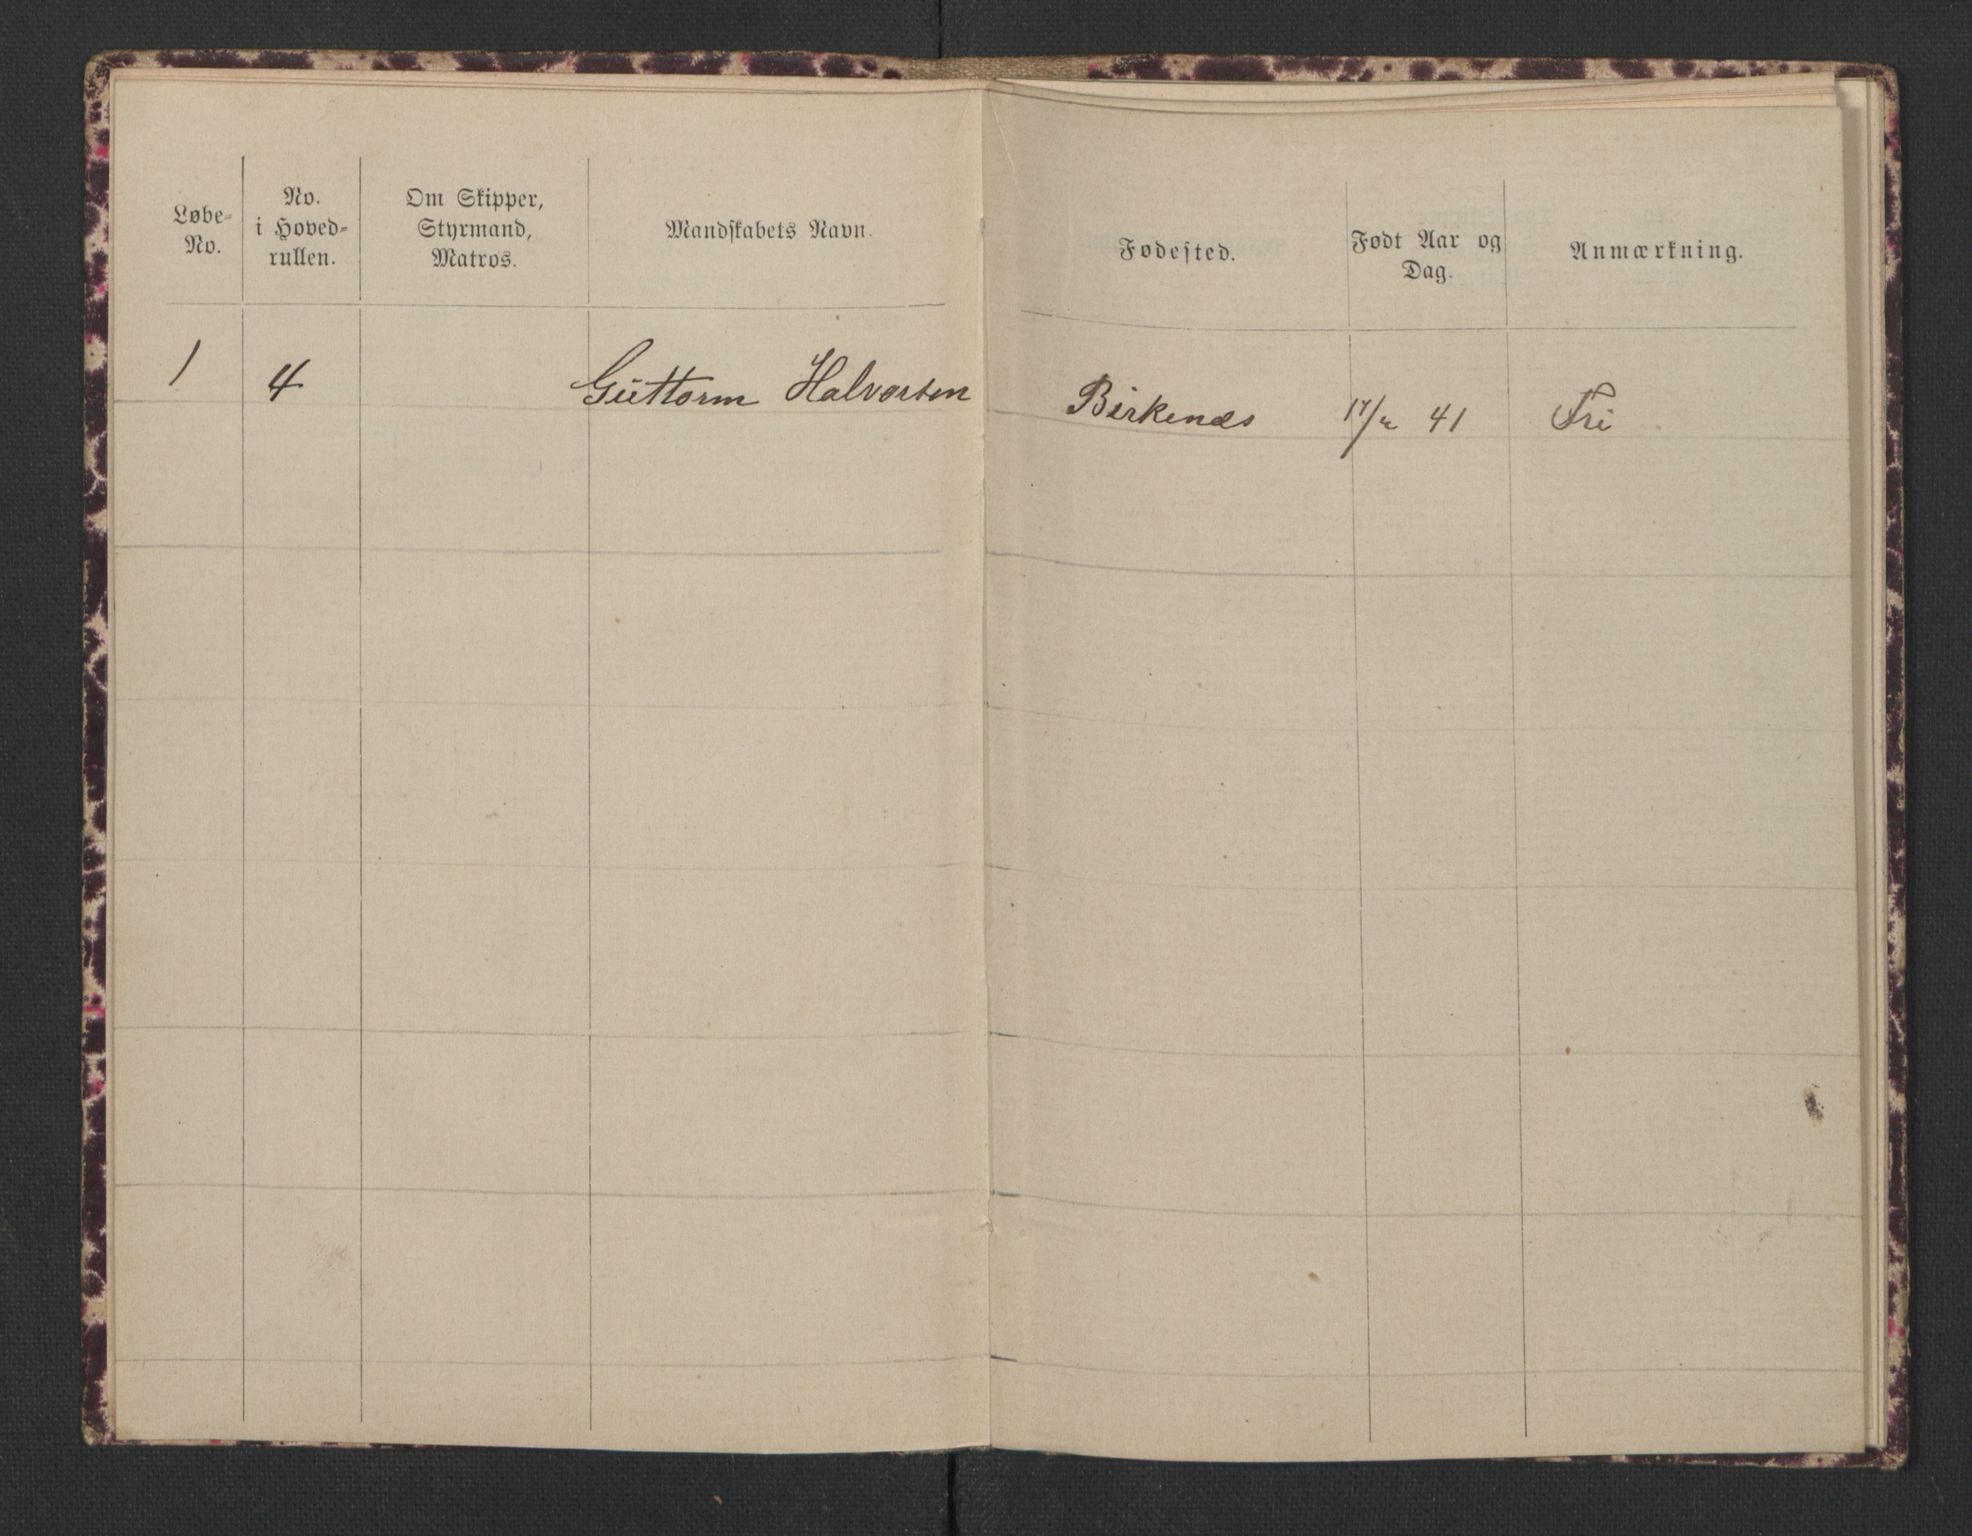 Løbe-
No.
No.
i Hoved-
rullen.
Om Skipper,
Styrmand,
Matros.
Mandskabets Navn.
Fødested.
Født Aar og
Dag.
Anmærkning.
1 4 Guttorm Halvorsen Birkenæs 41 Fri